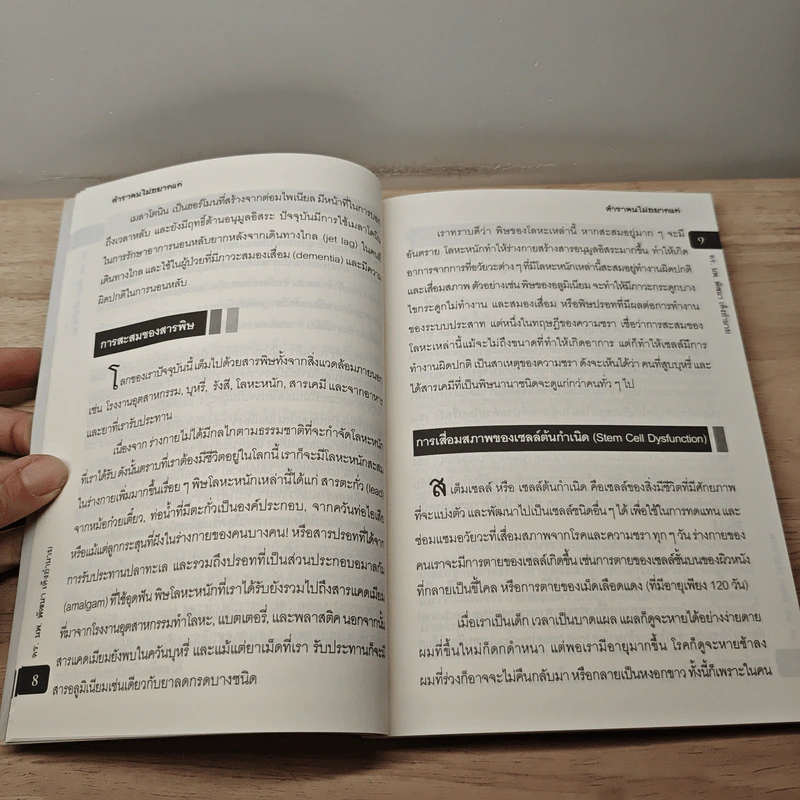 ตำราคนไม่อยากแก่
เมลาโตนิน เป็นฮอร์โมนที่สร้างจากต่อมไพเนียล มีหน้าที่ในการบอก
ถึงเวลาหลับ และยังมีฤทธิ์ต้านอนุมูลอิสระ ปัจจุบันมีการใช้เมลาโตนิน
ในการรักษาอาการนอนหลับยากหลังจากเดินทางไกล (jet lag) ในคนที่
เดินทางไกล และใช้ในผู้ป่วยที่มีภาวะสมองเสื่อม (dementia) และมีความ
ผิดปกติในการนอนหลับ
การสะสมของสารพิษ
โลกของเราปัจจุบันนี้ เต็มไปด้วยสารพิษทั้งจากสิ่งแวดล้อมภายนอก
เช่น โรงงานอุตสาหกรรม, บุหรี่, รังสี, โลหะหนัก, สารเคมี และจากอาหาร
และยาที่เรารับประทาน
เนื่องจาก ร่างกายไม่ได้มีกลไกตามธรรมชาติที่จะกำจัดโลหะหนัก
ที่เราได้รับ ดังนั้นตราบที่เราต้องมีชีวิตอยู่ในโลกนี้ เราก็จะมีโลหะหนักสะสม
ในร่างกายเพิ่มมากขึ้นเรื่อย ๆ พิษโลหะหนักเหล่านี้ได้แก่ สารตะกั่ว (lead)
จากหม้อก๋วยเตี๋ยว, ท่อน้ำที่มีตะกั่วเป็นองค์ประกอบ, จากควันท่อไอเสีย
หรือแม้แต่ลูกกระสุนที่ฝังในร่างกายของคนบางคน! หรือสารปรอทที่ได้จาก
การรับประทานปลาทะเล และรวมถึงปรอทที่เป็นส่วนประกอบอมาลกัม
(amalgam) ที่ใช้อุดฟัน พิษโลหะหนักที่เราได้รับยังรวมไปถึงสารแคดเมียม
ที่มาจากโรงงานอุตสาหกรรมทำโลหะ, แบตเตอรี่, และพลาสติค นอกจากนั้น
สารแคดเมียมยังพบในควันบุหรี่ และแม้แต่ยาเม็ดที่เรา รับประทานก็จะมี
สารอลูมิเนียมเช่นเดียวกับยาลดกรดบางชนิด
8
ดร. นพ. พัฒนา (เต็งอำนวย)
ตำราคนไม่อยากแก่
เราทราบดีว่า พิษของโลหะเหล่านี้ หากสะสมอยู่มาก ๆ จะมี
อันตราย โลหะหนักทำให้ร่างกายสร้างสารอนุมูลอิสระมากขึ้น ทำให้เกิด
อาการจากการที่อวัยวะต่าง ๆ ที่มีโลหะหนักเหล่านี้สะสมอยู่ทำงานผิดปกติ
และเสื่อมสภาพ ตัวอย่างเช่น พิษของอลูมิเนียม จะทำให้มีภาวะกระดูกบาง
ไขกระดูกไม่ทำงาน และสมองเสื่อม หรือพิษปรอทที่มีผลต่อการทำงาน
ของระบบประสาท แต่หนึ่งในทฤษฎีของความชรา เชื่อว่าการสะสมของ
โลหะเหล่านี้แม้จะไม่ถึงขนาดที่ทำให้เกิดอาการ แต่ก็ทำให้เซลล์มีการ
ทำงานผิดปกติ เป็นสาเหตุของความชรา ดังจะเห็นได้ว่า คนที่สูบบุหรี่ และ
ได้สารเคมีที่เป็นพิษนานาชนิดจะดูแก่กว่าคนทั่ว ๆ ไป
การเสื่อมสภาพของเซลล์ต้นกำเนิด (Stem Cell Dysfunction)
สเต็มเซลล์ หรือ เซลล์ต้นกำเนิด คือเซลล์ของสิ่งมีชีวิตที่มีศักยภาพ
ที่จะแบ่งตัว และพัฒนาไปเป็นเซลล์ชนิดอื่น ๆ ได้ เพื่อใช้ในการทดแทน และ
ซ่อมแซมอวัยวะที่เสื่อมสภาพจากโรคและความชรา ทุก ๆ วัน ร่างกายของ
คนเราจะมีการตายของเซลล์เกิดขึ้น เช่นการตายของเซลล์ชั้นบนของผิวหนัง
ที่กลายเป็นขี้ไคล หรือการตายของเม็ดเลือดแดง (ที่มีอายุเพียง 120 วัน)
เมื่อเราเป็นเด็ก เวลาเป็นบาดแผล แผลก็ดูจะหายได้อย่างง่ายดาย
ผมที่ขึ้นใหม่ก็ดกดำหนา แต่พอเรามีอายุมากขึ้น โรคก็ดูจะหายช้าลง
ผมที่ร่วงก็อาจจะไม่คืนกลับมา หรือกลายเป็นหงอกขาว ทั้งนี้ก็เพราะในคน
9
ดร. นพ. พัฒนา (เต็งอำนวย)